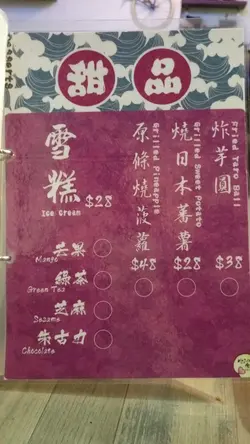 Desserts
甜品
炸芋圓
Fried Taro Ball
$38
燒日本蕃薯
Grilled Sweet Potato
$28
原條燒菠蘿
Grilled Pineapple
$48
雪糕
Ice Cream
$28
芒果
Mango
綠茶
Green Tea
芝麻
Sesame
朱古力
Chocolate